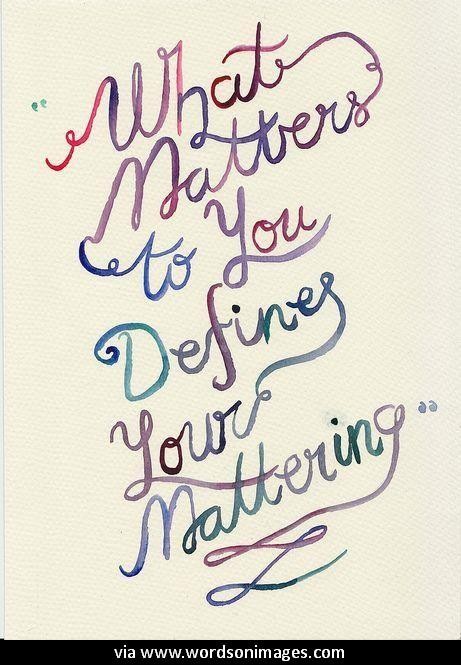 “What
Matters
to You
Defines
Your
Mattering”
via www.wordsonimages.com